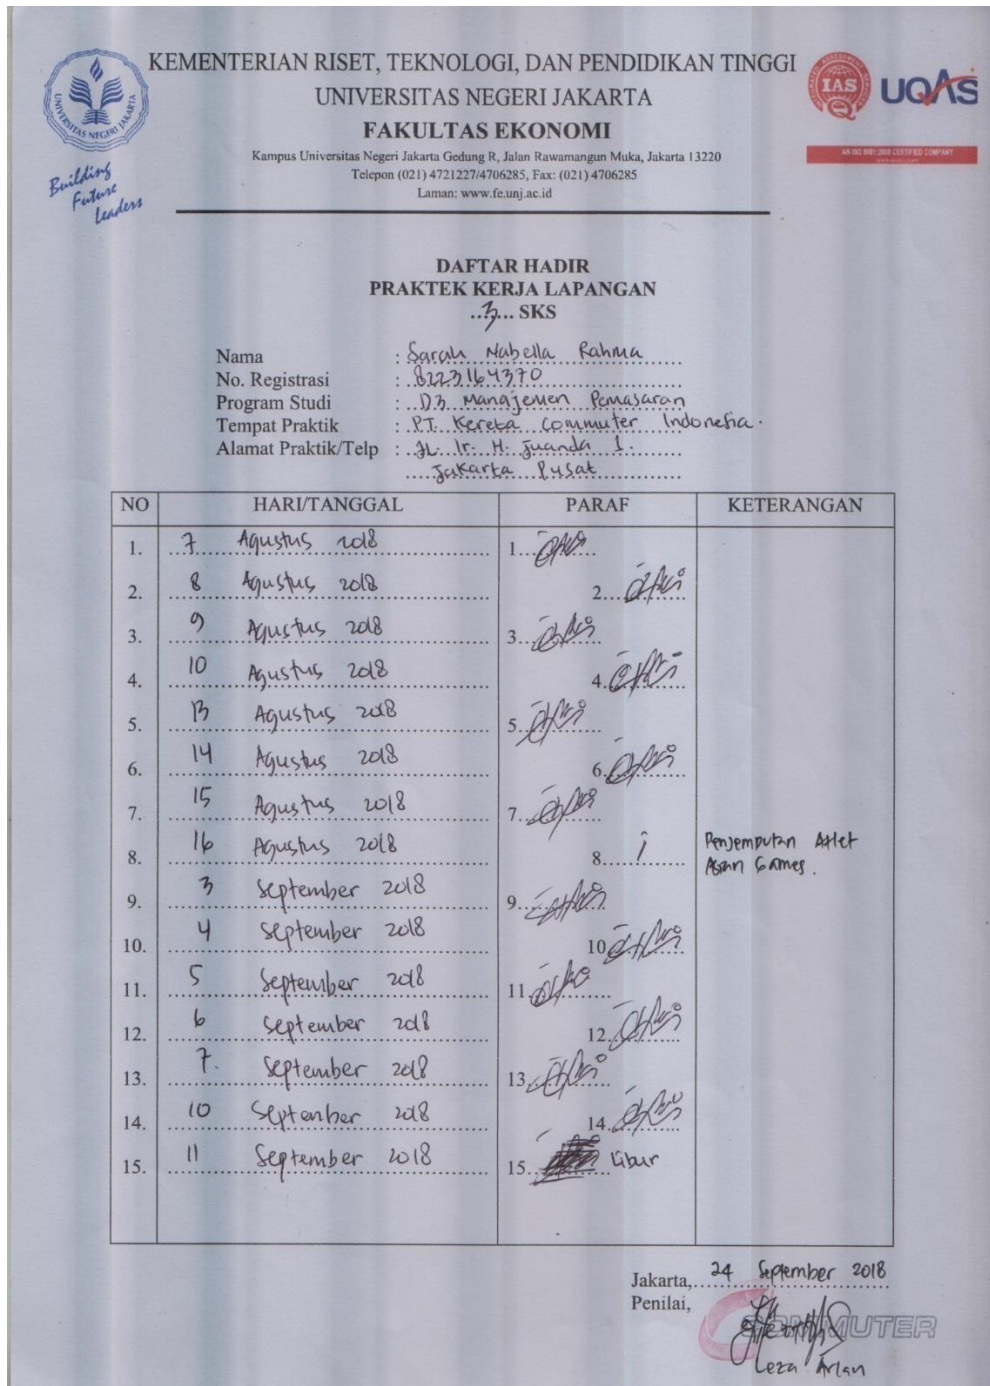 KEMENTERIAN RISET, TEKNOLOGI, DAN PENDIDIKAN TINGGI
UNIVERSITAS NEGERI JAKARTA
FAKULTAS EKONOMI
Kampus Universitas Negeri Jakarta Gedung R, Jalan Rawamangun Muka, Jakarta 13220
Telepon (021) 4721227/4706285, Fax: (021) 4706285
Laman: www.fe.unj.ac.id
UNIVERSITAS NEGERI JAKARTA
Building
Future
Leaders
IAS
UQAS
AN ISO 9001:2008 CERTIFIED COMPANY
DAFTAR HADIR
PRAKTEK KERJA LAPANGAN
..3... SKS
Nama : Sarah Nabella Rahma
No. Registrasi : 8223164370
Program Studi : D3 Manajemen Pemasaran
Tempat Praktik : PT. Kereta Commuter Indonesia.
Alamat Praktik/Telp : JL. Ir. H. Juanda 1.
Jakarta Pusat
NO HARI/TANGGAL PARAF KETERANGAN
1. 7 Agustus 2018 1.
2. 8 Agustus 2018 2.
3. 9 Agustus 2018 3.
4. 10 Agustus 2018 4.
5. 13 Agustus 2018 5.
6. 14 Agustus 2018 6.
7. 15 Agustus 2018 7.
8. 16 Agustus 2018 8. i Penjemputan Atlet
Asian Games.
9. 3 September 2018 9.
10. 4 September 2018 10.
11. 5 September 2018 11.
12. 6 September 2018 12.
13. 7. September 2018 13.
14. 10 September 2018 14.
15. 11 September 2018 15. Libur
Jakarta, 24 September 2018
Penilai,
COMMUTER
Leza Arlan